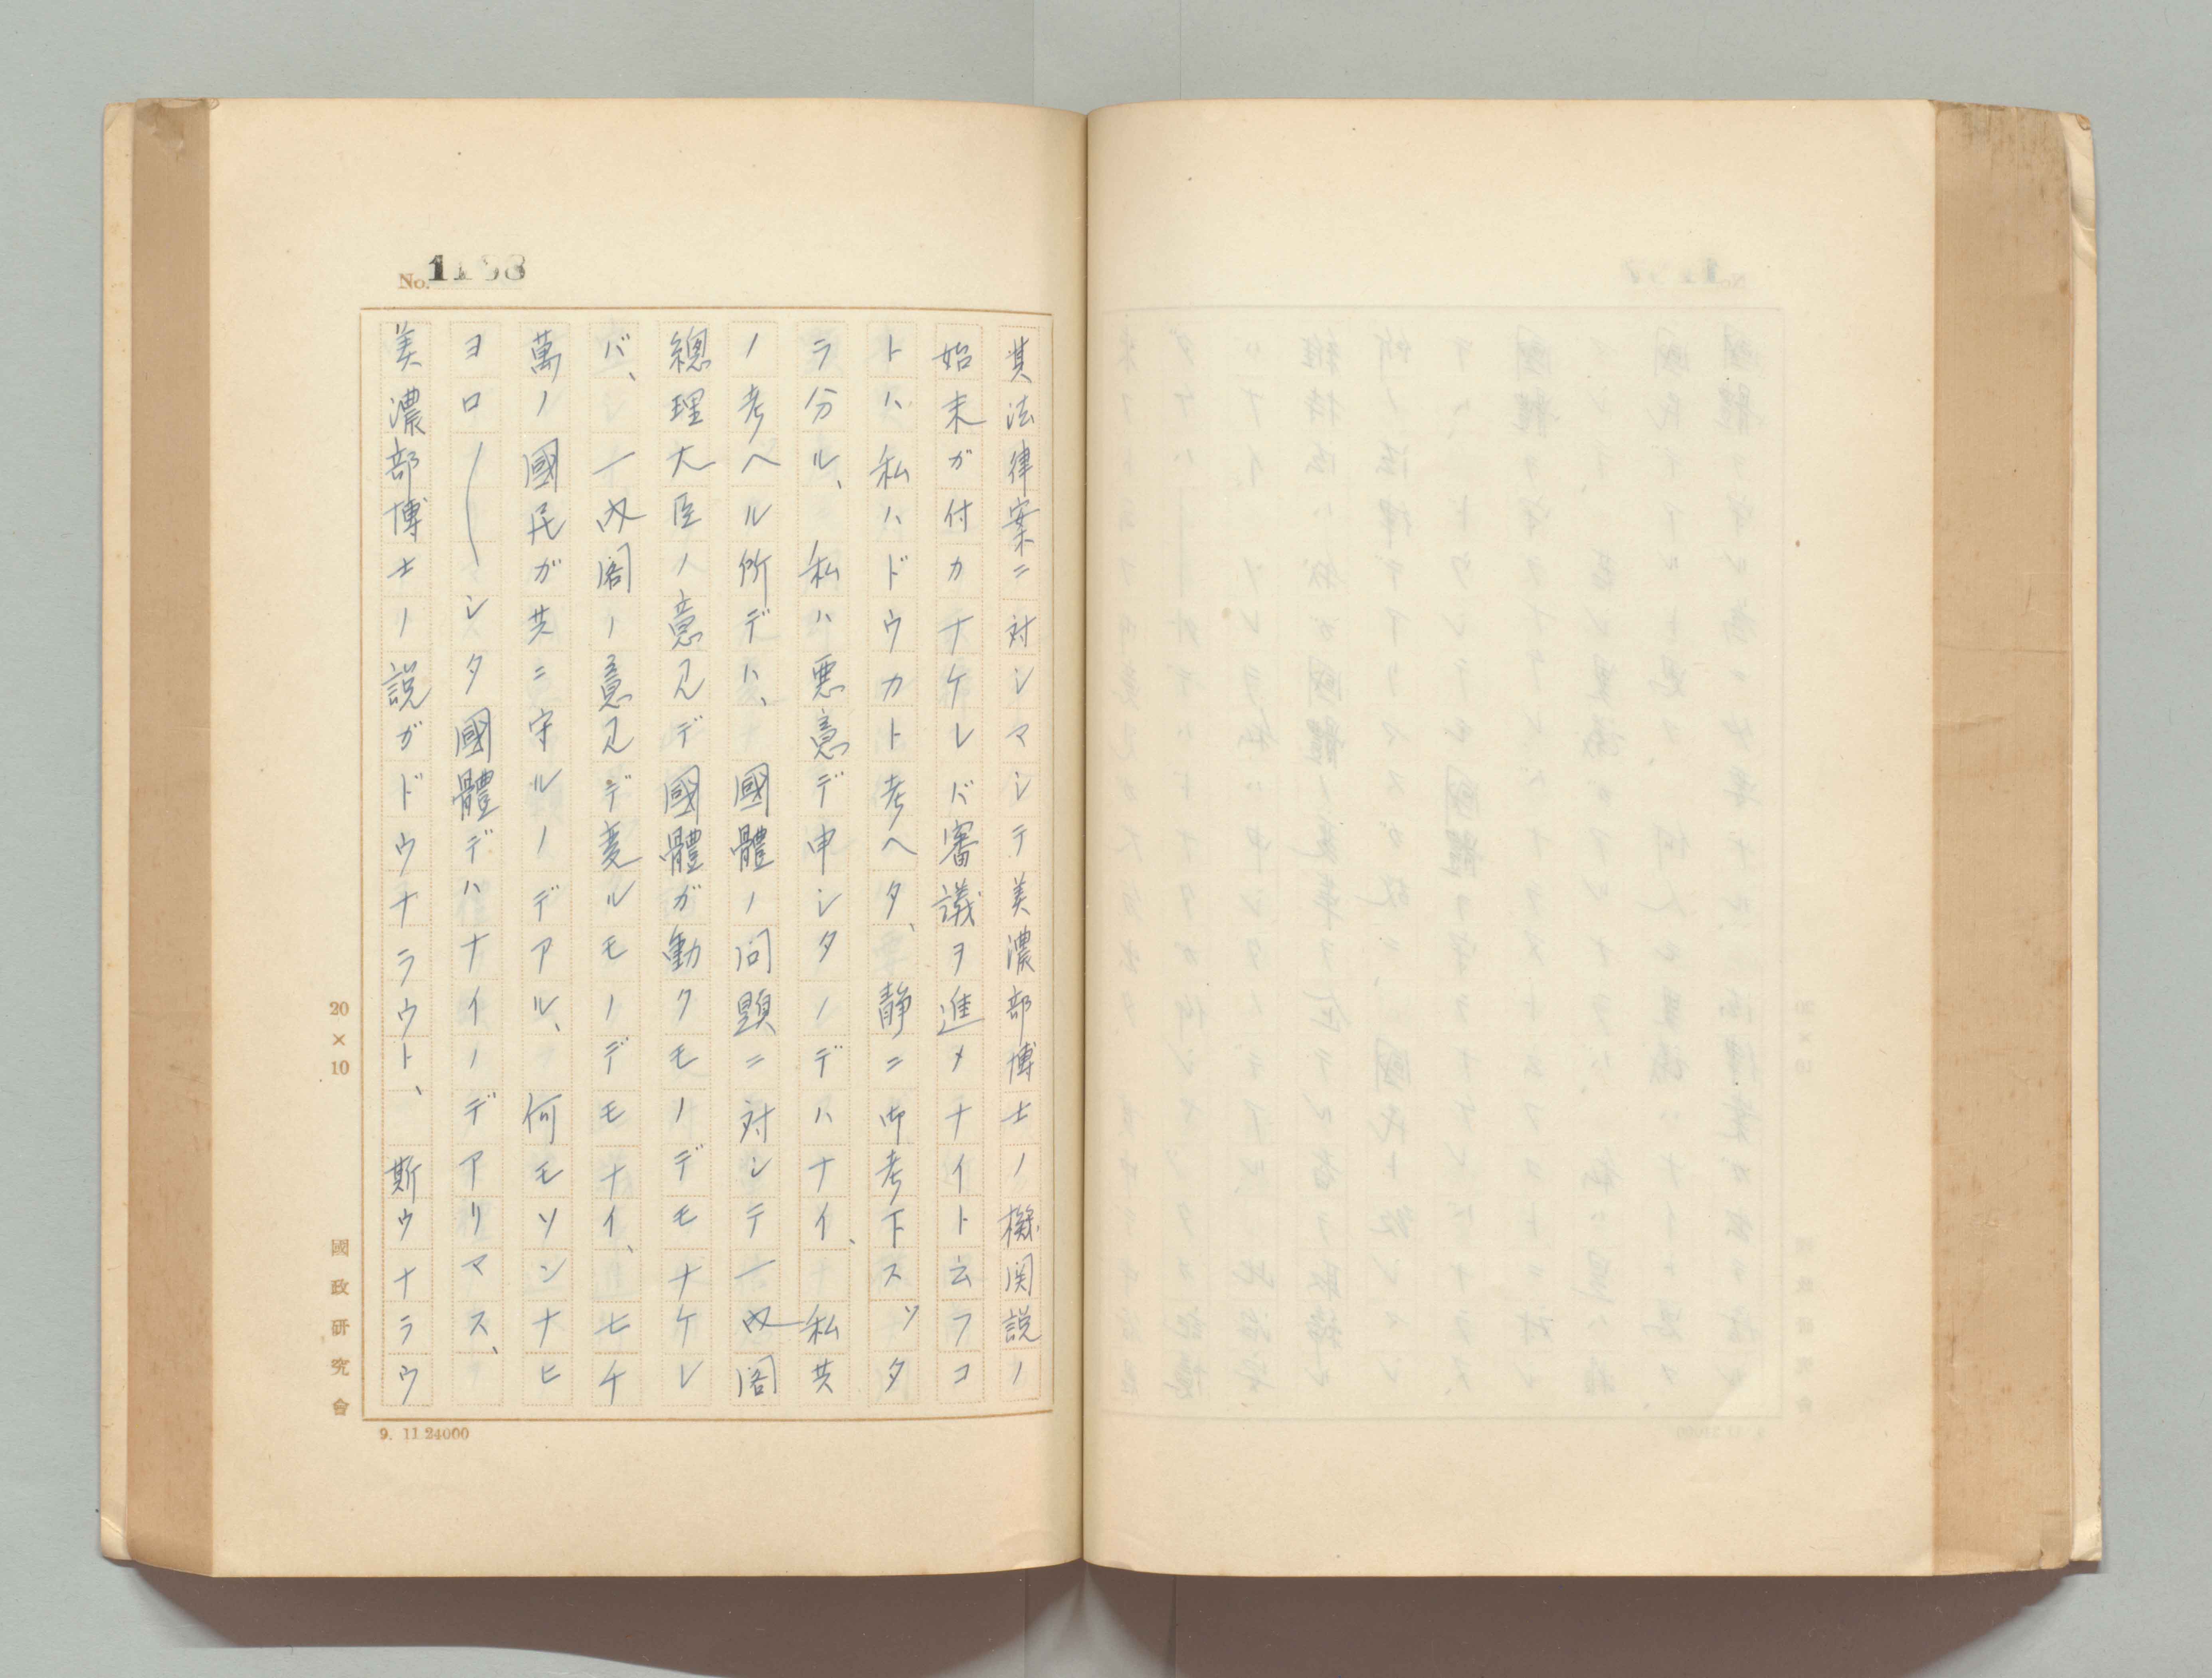 No. 1198
其法律案ニ対シマシテ美濃部博士ノ機関説ノ
始末ガ付カナケレバ審議ヲ進メナイト云フコ
トハ私ハドウカト考ヘタ、静ニ御考下スッタ
ラ分ル、私ハ悪意デ申シタノデハナイ、私共
ノ考ヘル所デハ、國體ノ問題ニ対シテ一内閣
總理大臣ノ意見デ國體ガ動クモノデモナケレ
バ、一内閣ノ意見デ変ルモノデモナイ、七千
萬ノ國民ガ共ニ守ルノデアル、何モソンナヒ
ヨロ〳〵シタ國體デハナイノデアリマス、
美濃部博士ノ説ガドウナラウト、斯ウナラウ
20×10
國政研究會
9. 11 24000